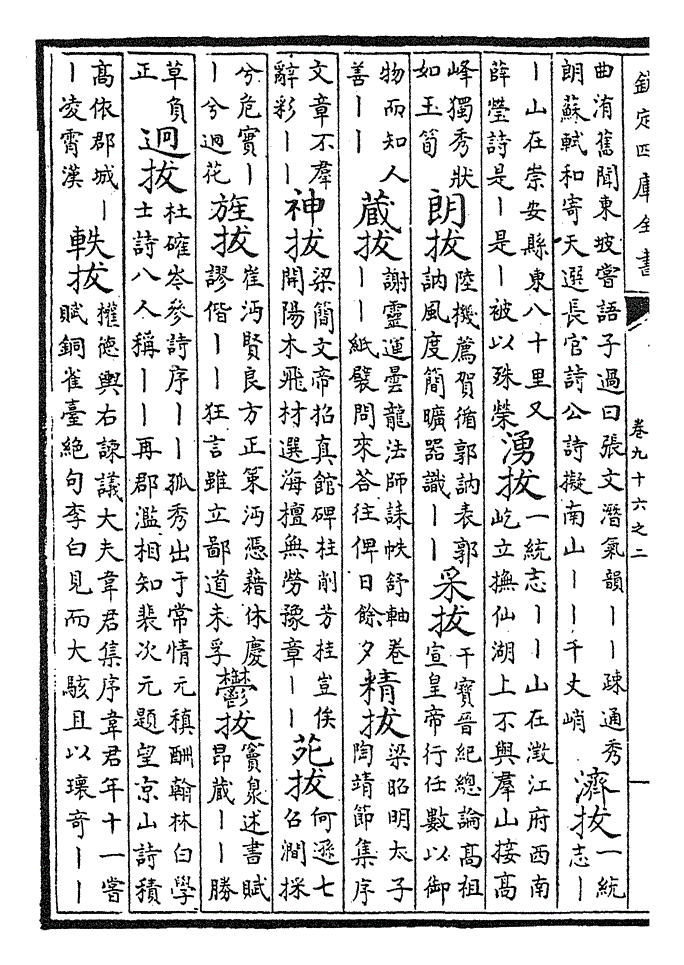 欽定四庫全書 卷九十六之二 一
曲洧舊聞東坡嘗語子過曰張文潛氣韻丨丨疎通秀
朗蘇軾和寄天選長官詩公詩擬南山丨丨千丈峭
濟拔
一統
志丨
丨山在崇安縣東八十里又
薛瑩詩是丨是丨被以珠榮
湧拔
一統志丨丨山在澂江府西南
屹立撫仙湖上不與羣山接高
峰獨秀狀
如玉筍
朗拔
陸機薦賀循郭訥表郭
訥風度簡曠器識丨丨
采拔
干寶晉紀總論高祖
宣皇帝行任數以御
物而知人
善丨丨
藏拔
謝靈運曇龍法師誄帙舒軸卷
丨丨紙襞問來答往俾日餘夕
精拔
梁昭明太子
陶靖節集序
文章不羣
辭彩丨丨
神拔
梁簡文帝招真館碑柱削芳桂豈俟
開陽木飛材選海檀無勞豫章丨丨
苑拔
何遜七
召澗採
兮危實丨
丨兮迥花
旌拔
崔沔賢良方正策沔憑藉休慶
謬偕丨丨狂言雖立鄙道未孚
鬱拔
竇泉述書賦
昂藏丨丨勝
草負
正
迥拔
杜確岑參詩序丨丨孤秀出于常情元稹酬翰林白學
士詩八人稱丨丨再郡濫相知裴次元題望京山詩積
高依郡城丨
丨凌霄漢
軼拔
權德輿右諫議大夫韋君集序韋君年十一嘗
賦銅雀臺絕句李白見而大駭且以瓌奇丨丨